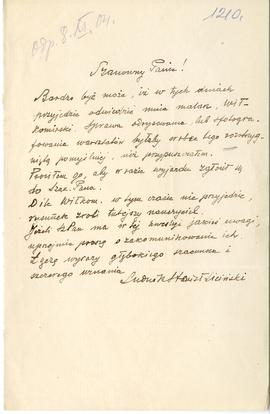 odp. 8. XI. 04.
1210.
Szanowny Panie!
Bardzo być może, iż w tych dniach
przyjedzie odwiedzić mnie malarz, Wit-
komirski. Sprawa odrysowania, lub sfotogra-
fowania warsztatów byłaby wobec tego rozstrzyg-
niętą pomyślniej, niż przypuszczałem.
Prosiłem go, aby w razie wyjazdu zgłosił się
do Szan. Pana.
O ile Witkom. w tym czasie nie przyjedzie,
rysunek zrobi tutejszy nauczyciel.
Jeżeli Sz. Pan ma w tej kwestyi jakieś uwagi,
uprzejmie proszę o zakomunikowanie ich.
Łączę wyrazy głębokiego szacunku i
szczerego uznania.
Ludwik Stanisł. Liciński